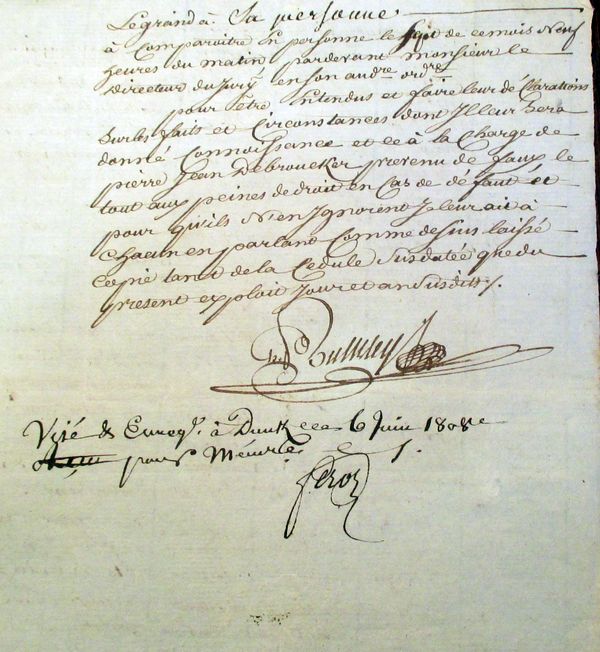 Legrand à Sa personne
à Comparoitre En personne le sept de ce mois Neuf
heures du matin pardevant monsieur le
Directeur du Jury en son
pour etre Entendus et faire leur déClarations
Sur les faits et Circonstances dont Il leur Sera
donné Connoissance et ce à la Charge de
pierre Jean Debroucker prevenu de faux le
tout aux peines de droit en Cas de défaut et
pour qu'ils N'en Ignorent Je leur ait à
Chacun en parlant Comme desus laissé
Copie tant de la Cedule Susdatée que du
present exploit Jour et an Susdit
Visé & Enregé. à Dunk le 6 Juin 1808
pour